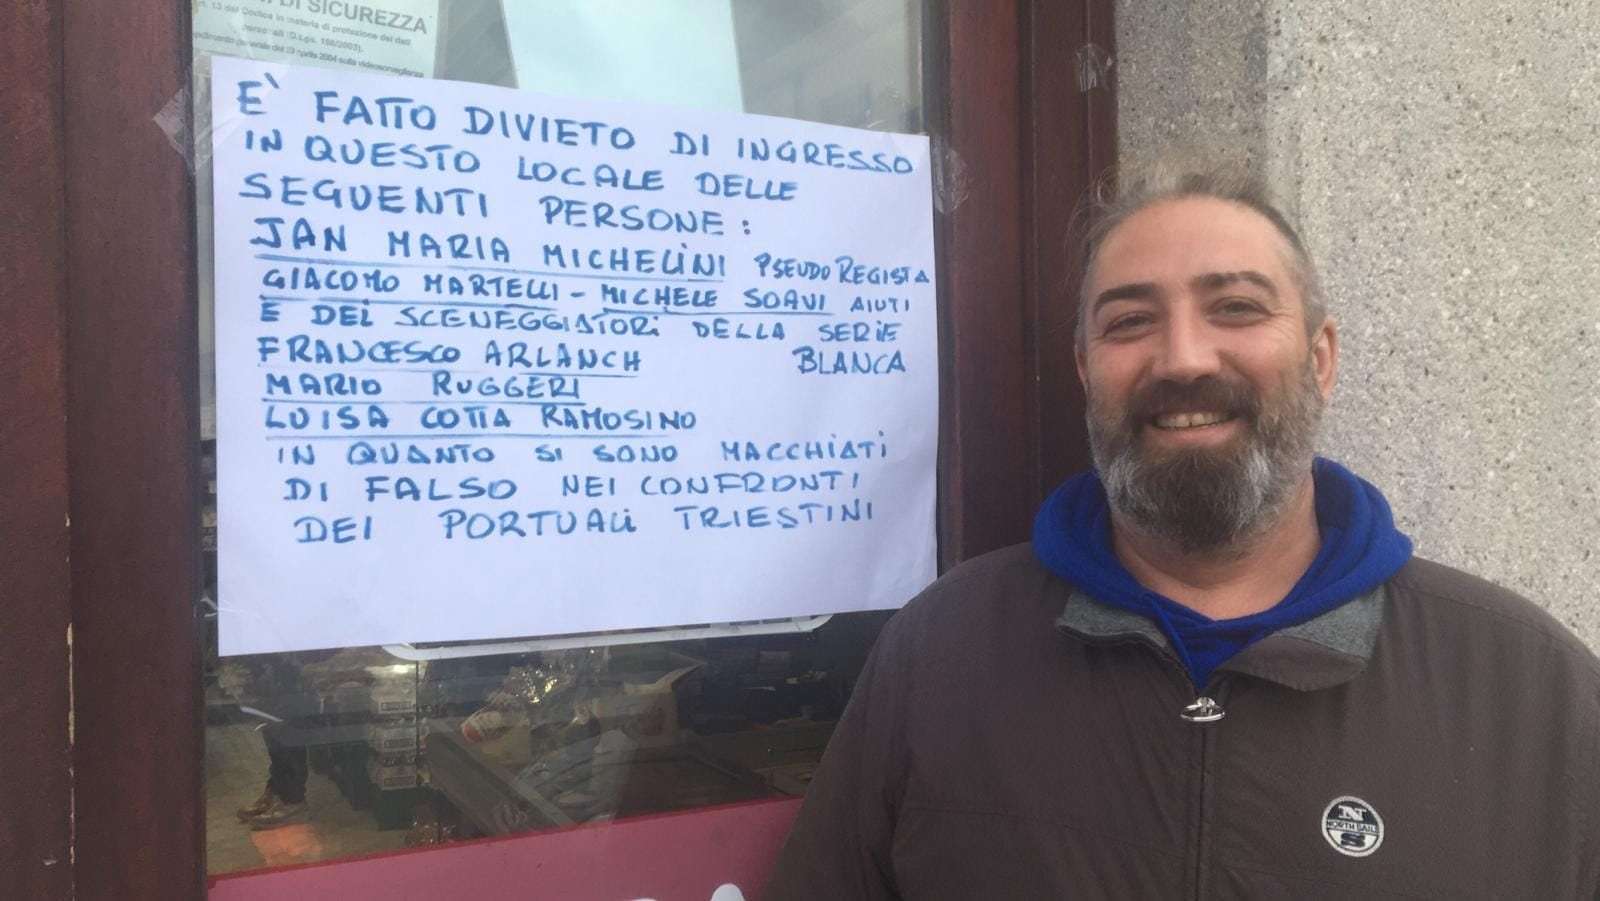 DI SICUREZZA
13 del Codice in materia di protezione dei dati
(D.Lgs. 196/2003).
generale del 29 aprile 2004 sulla videosorveglianza
E' FATTO DIVIETO DI INGRESSO
IN QUESTO LOCALE DELLE
SEGUENTI PERSONE:
JAN MARIA MICHELINI PSEUDO REGISTA
GIACOMO MARTELLI - MICHELE SOAVI AIUTI
E DEI SCENEGGIATORI DELLA SERIE
FRANCESCO ARLANCH BLANCA
MARIO RUGGERI
LUISA COTTA RAMOSINO
IN QUANTO SI SONO MACCHIATI
DI FALSO NEI CONFRONTI
DEI PORTUALI TRIESTINI
N
NORTH SAILS
S